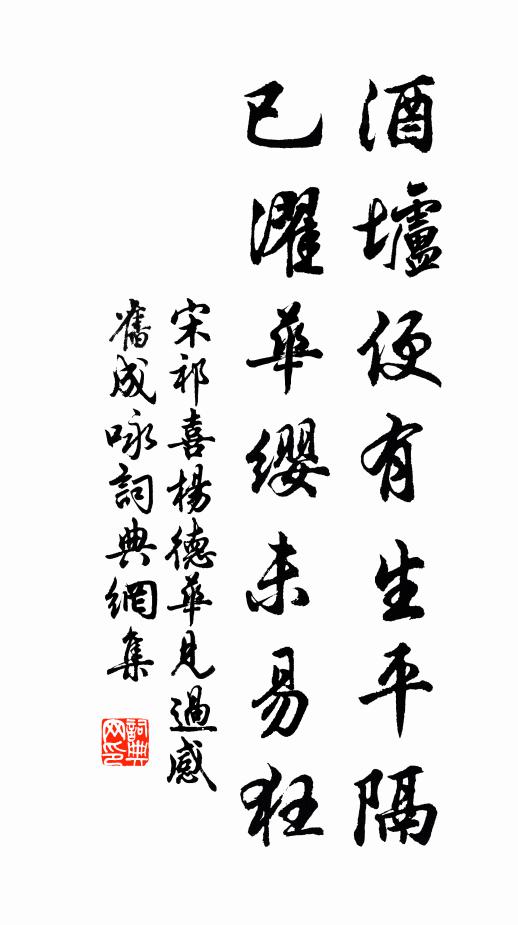 酒壚便有生平隔
已濯華纓未易狂
宋祁喜楊德華見過感
舊成咏詞典網集
詞典
网印